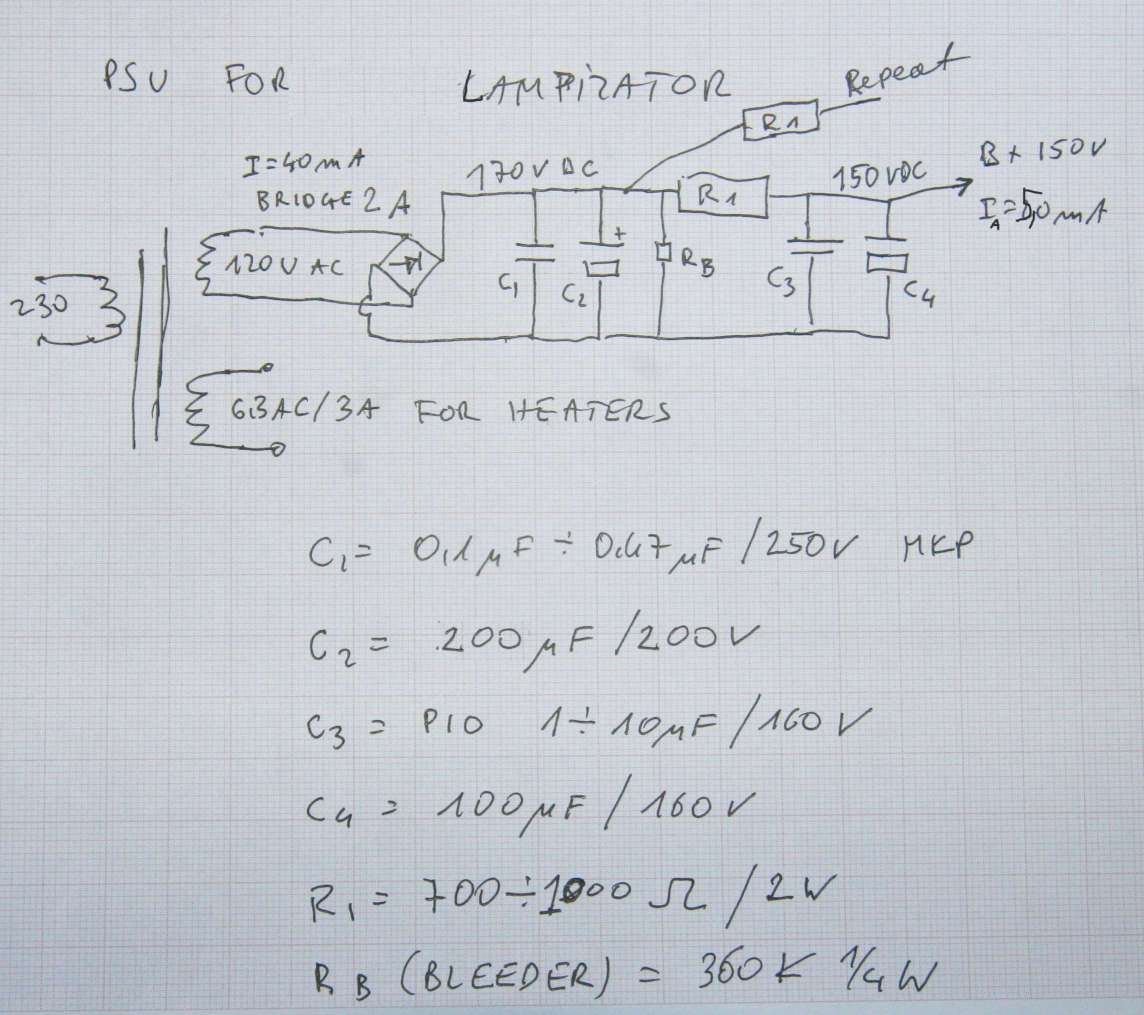 PSU FOR LAMPIZATOR
Repeat
R1
I=40mA
BRIDGE 2A
170V DC
R1
150VDC
B+ 150V
I_A=5,0mA
230
120V AC
C₁
+
C₂
R_B
C₃
C₄
6.3AC/3A FOR HEATERS
C₁= 0,1μF ÷ 0.47μF /250V MKP
C₂ = 200μF /200V
C₃ = PIO 1÷10μF /160V
C₄ = 100μF / 160V
R₁ = 700÷1000 Ω / 2W
R_B (BLEEDER) = 360K 1/4W